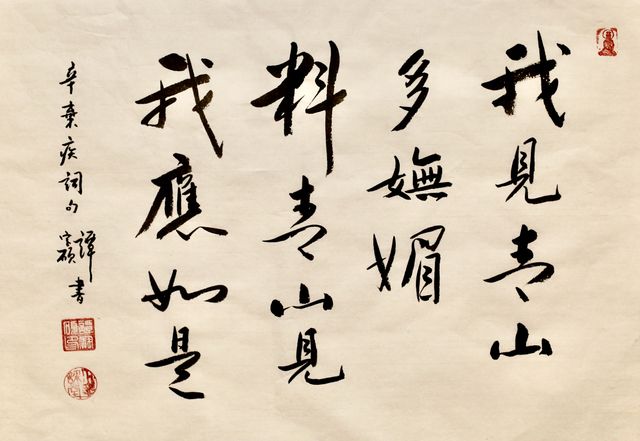 我見青山
多嫵媚
料青山見
我應如是
辛棄疾詞句
譚書